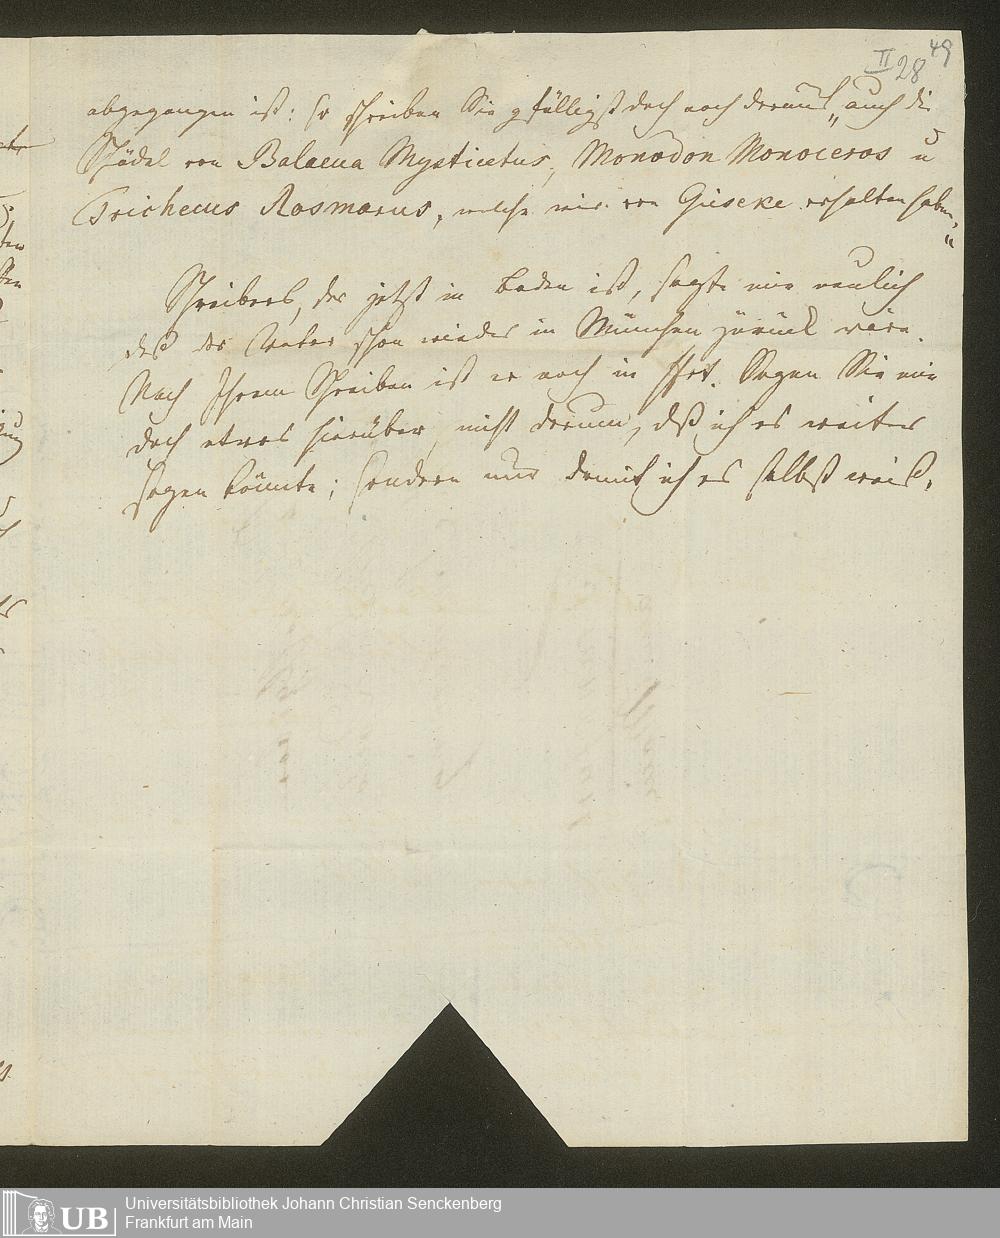 49
II 28
abgegangen ist: so schreiben Sie gefälligst doch noch darauf „auch die
Schädel von Balaena Mysticetus, Monodon Monoceros u
Trichecus Rosmarus, welche wir von Giseke erhalten haben."
Schreibers, der jetzt in Baden ist, sagte mir neulich
daß der schon wieder in München zurück wäre.
Nach Ihrem Schreiben ist er noch in Sagen Sie mir
doch etwas hierüber, nicht darum, daß ich es weiter
sagen könnte; sondern nur damit ich es selbst weiß.
UB
Universitätsbibliothek Johann Christian Senckenberg
Frankfurt am Main